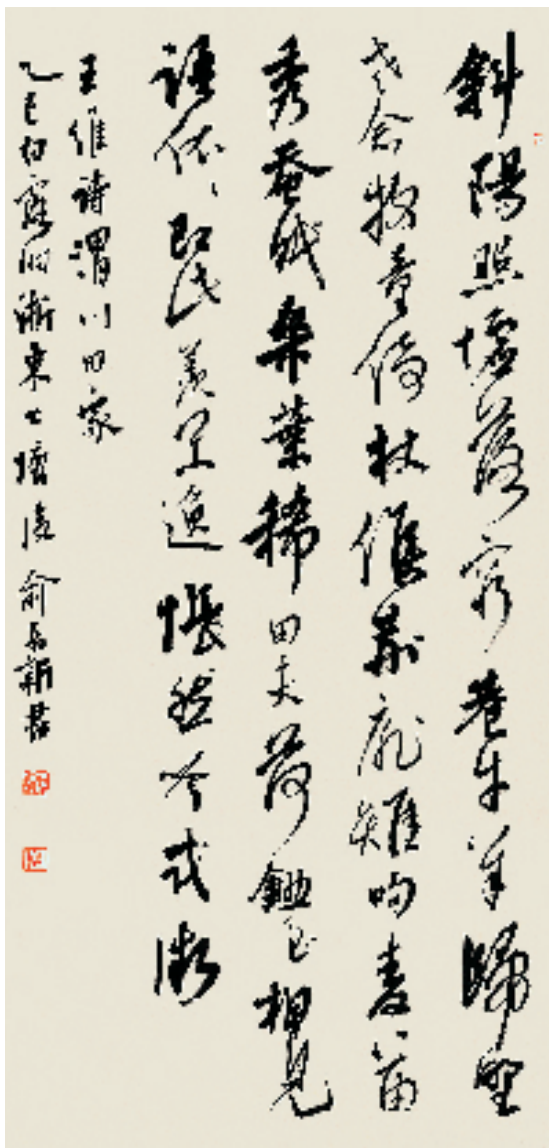 斜陽照墟落窮巷牛羊歸野
老念牧童倚杖候荊扉雉呴麥苗
秀蚕眠桑葉稀田夫荷鋤至相見
語依〻即此羨閒逸悵然吟式微
王維詩渭川田家
乙巳初浙東俞新書